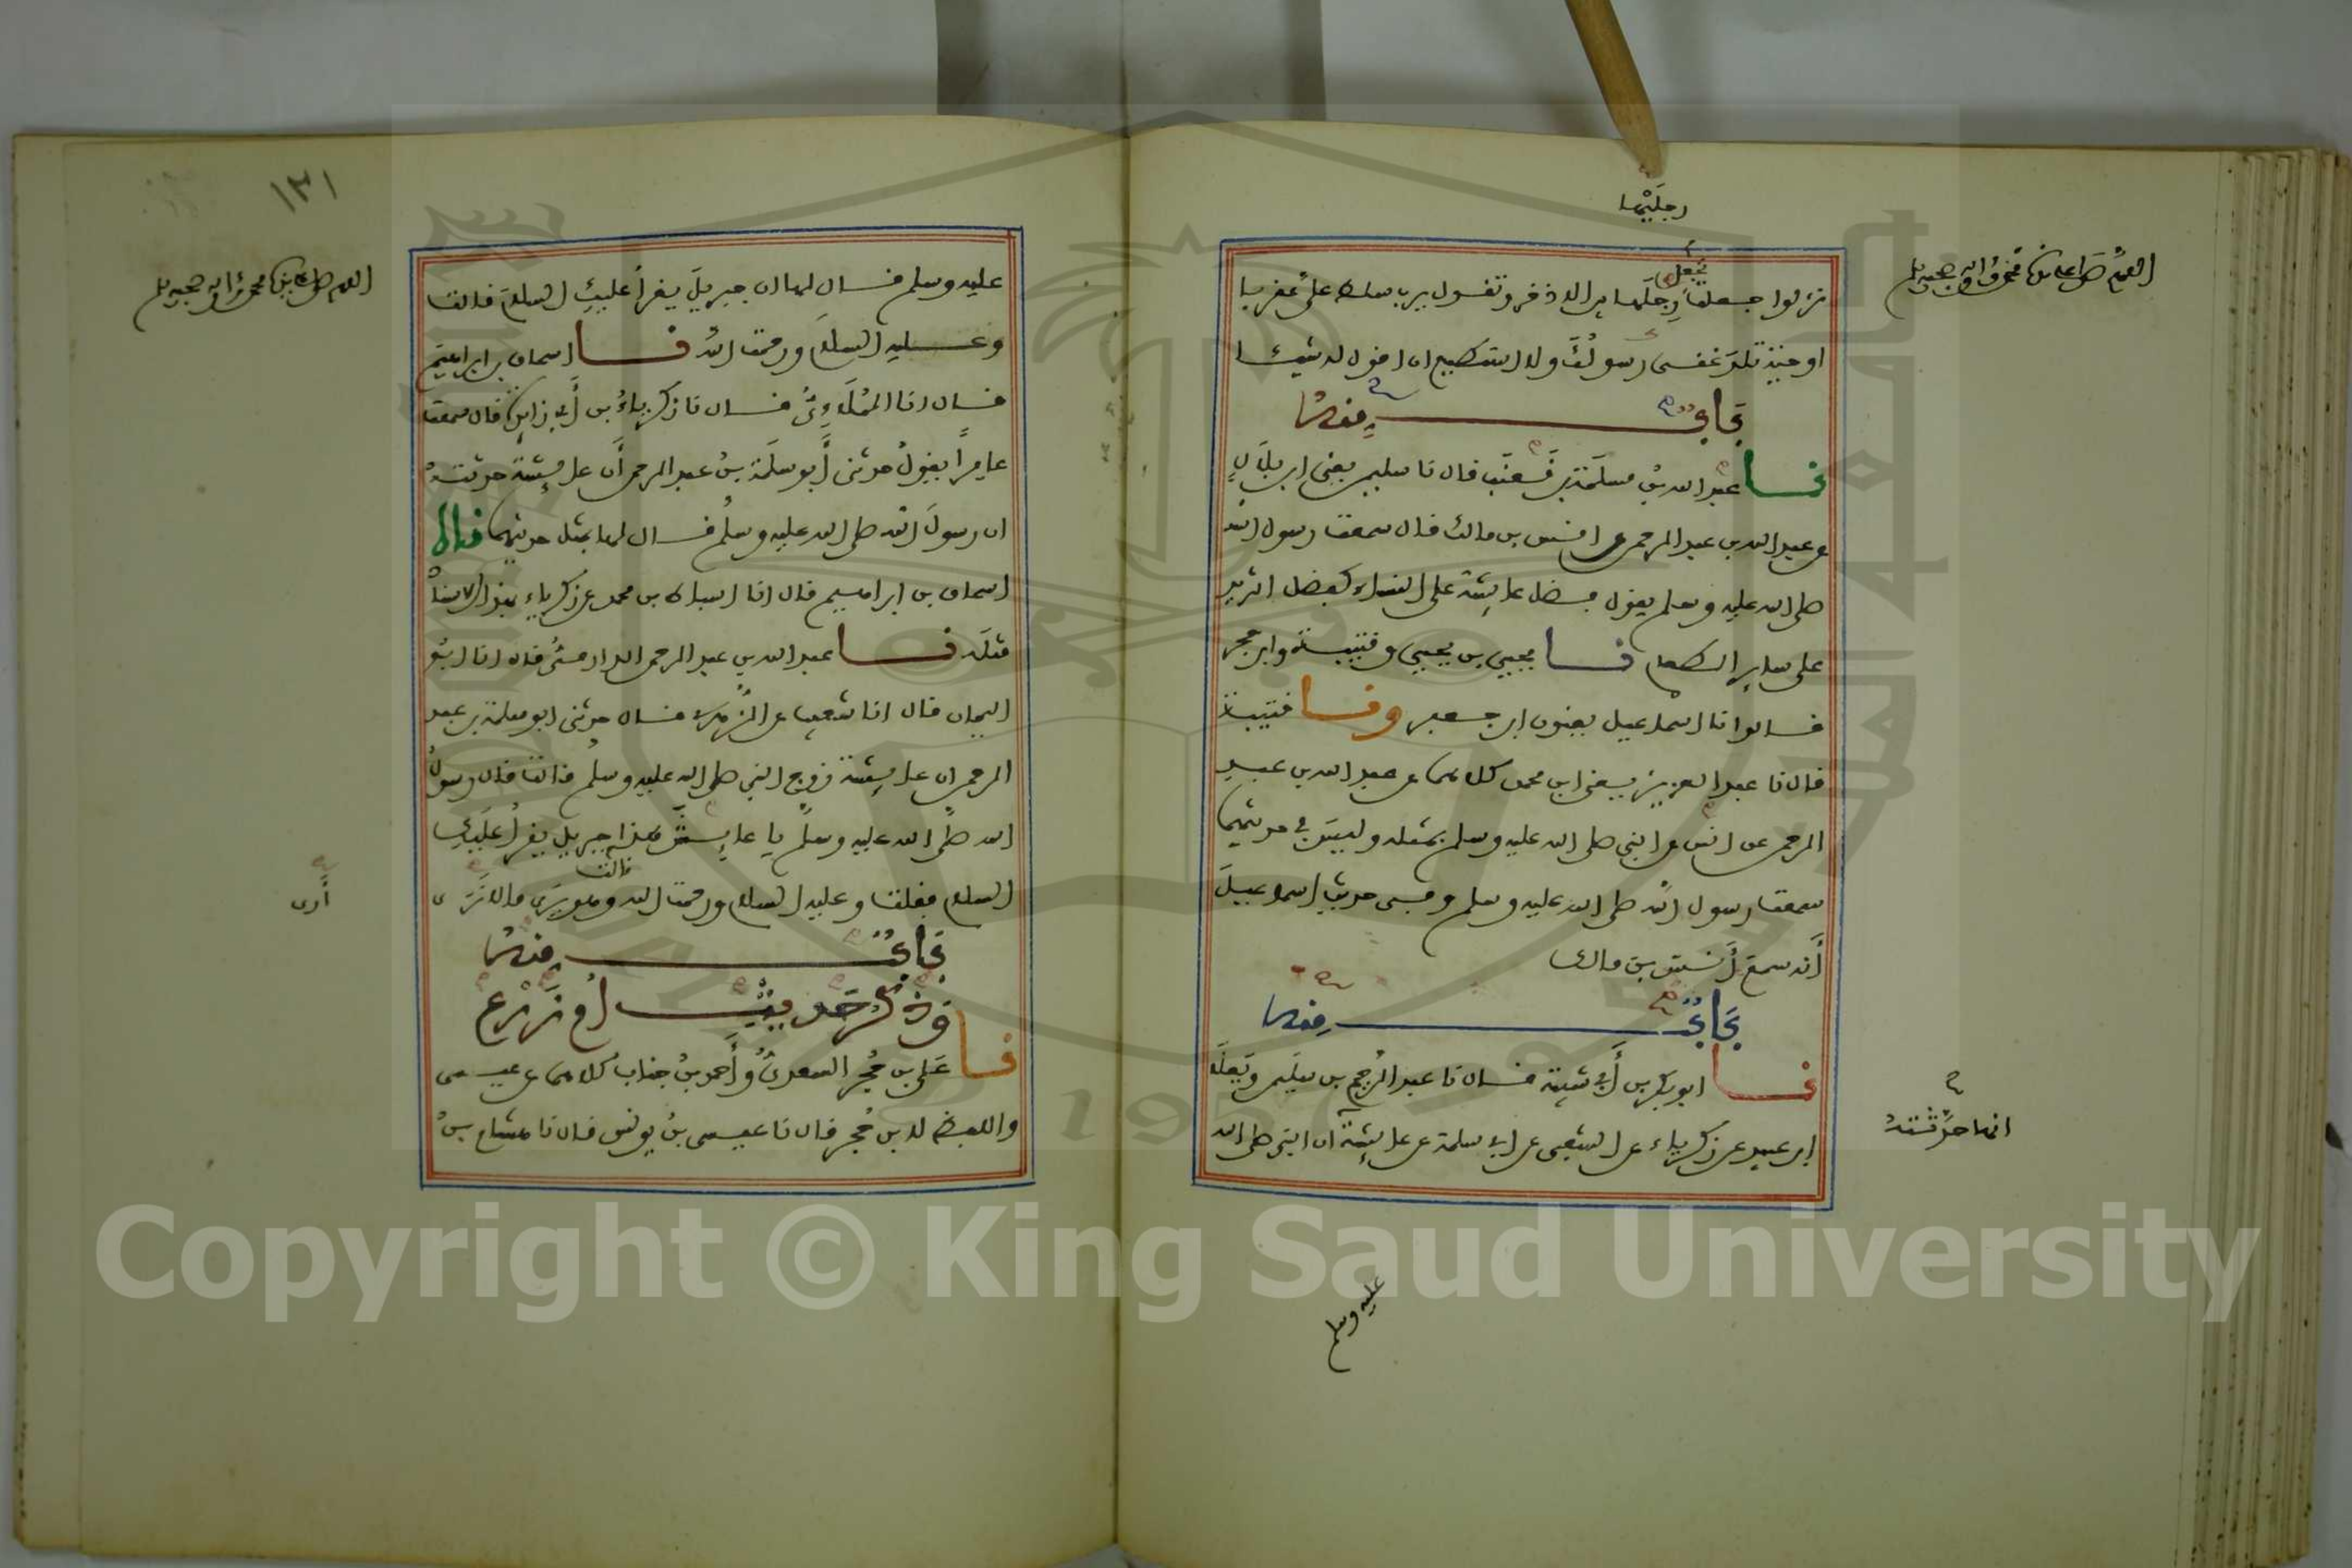 رجليها
اللهم صل على نبينا محمد واله وصحبه وسلم
نزلوا جعلت تجعل رجلها بين الاذخر وتقول يا رب سلط علي عقربا
او حية تلدغني رسولك ولا استطيع ان اقول له شيئا
باب منه
نا عبد الله بن مسلمة بن قعنب قال نا سليمن يعني ابن بلال
عن عبد الله بن عبد الرحمن عن انس بن مالك قال سمعت رسول الله
صلى الله عليه وسلم يقول فضل عايشة على النساء كفضل الثريد
على ساير الطعام نا يحيى بن يحيى وقتيبة وابن حجر
قالوا نا اسماعيل يعنون ابن جعفر ونا قتيبة
قال نا عبد العزيز يعني ابن محمد كلاهما عن عبد الله بن عبد
الرحمن عن انس عن النبي صلى الله عليه وسلم بمثله وليس في حديثهما
سمعت رسول الله صلى الله عليه وسلم وفي حديث اسماعيل
أنه سمع أنس بن مالك
باب منه
نا ابو بكر بن أبي شيبة قال نا عبد الرحيم بن سليمن ويعلى
ابن عبيد عن زكرياء عن الشعبي عن ابي سلمة عن عايشة ان النبي صلى الله
انها حدثته
عليه وسلم
١٣١
اللهم صل على نبينا محمد واله وصحبه وسلم
عليه وسلم قال لها ان جبريل يقرأ عليك السلام قالت
وعليه السلام ورحمت الله نا اسحاق بن ابراهيم
قال انا الملاءي قال نا زكرياء بن أبي زايدة قال سمعت
عامرا يقول حدثني أبو سلمة بن عبد الرحمن أن عايشة حدثته
ان رسول الله صلى الله عليه وسلم قال لها بمثل حديثهما نا
اسحاق بن ابراهيم قال انا اسباط بن محمد عن زكرياء بهذا الاسناد
مثله نا عبد الله بن عبد الرحمن الدارمي قال انا ابو
اليمان قال انا شعيب عن الزهري قال حدثني ابو سلمة بن عبد
الرحمن ان عايشة زوج النبي صلى الله عليه وسلم قالت قال رسول
الله صلى الله عليه وسلم يا عايش هذا جبريل يقرأ عليك
السلام فقلت وعليه السلام ورحمت الله قالت وهو يرى ما لا نرى
أرى
باب منه
وذكر حديث أم زرع
نا علي بن حجر السعدي وأحمد بن جناب كلاهما عن عيسى
واللفظ لابن حجر قال نا عيسى بن يونس قال نا هشام بن
Copyright © King Saud University